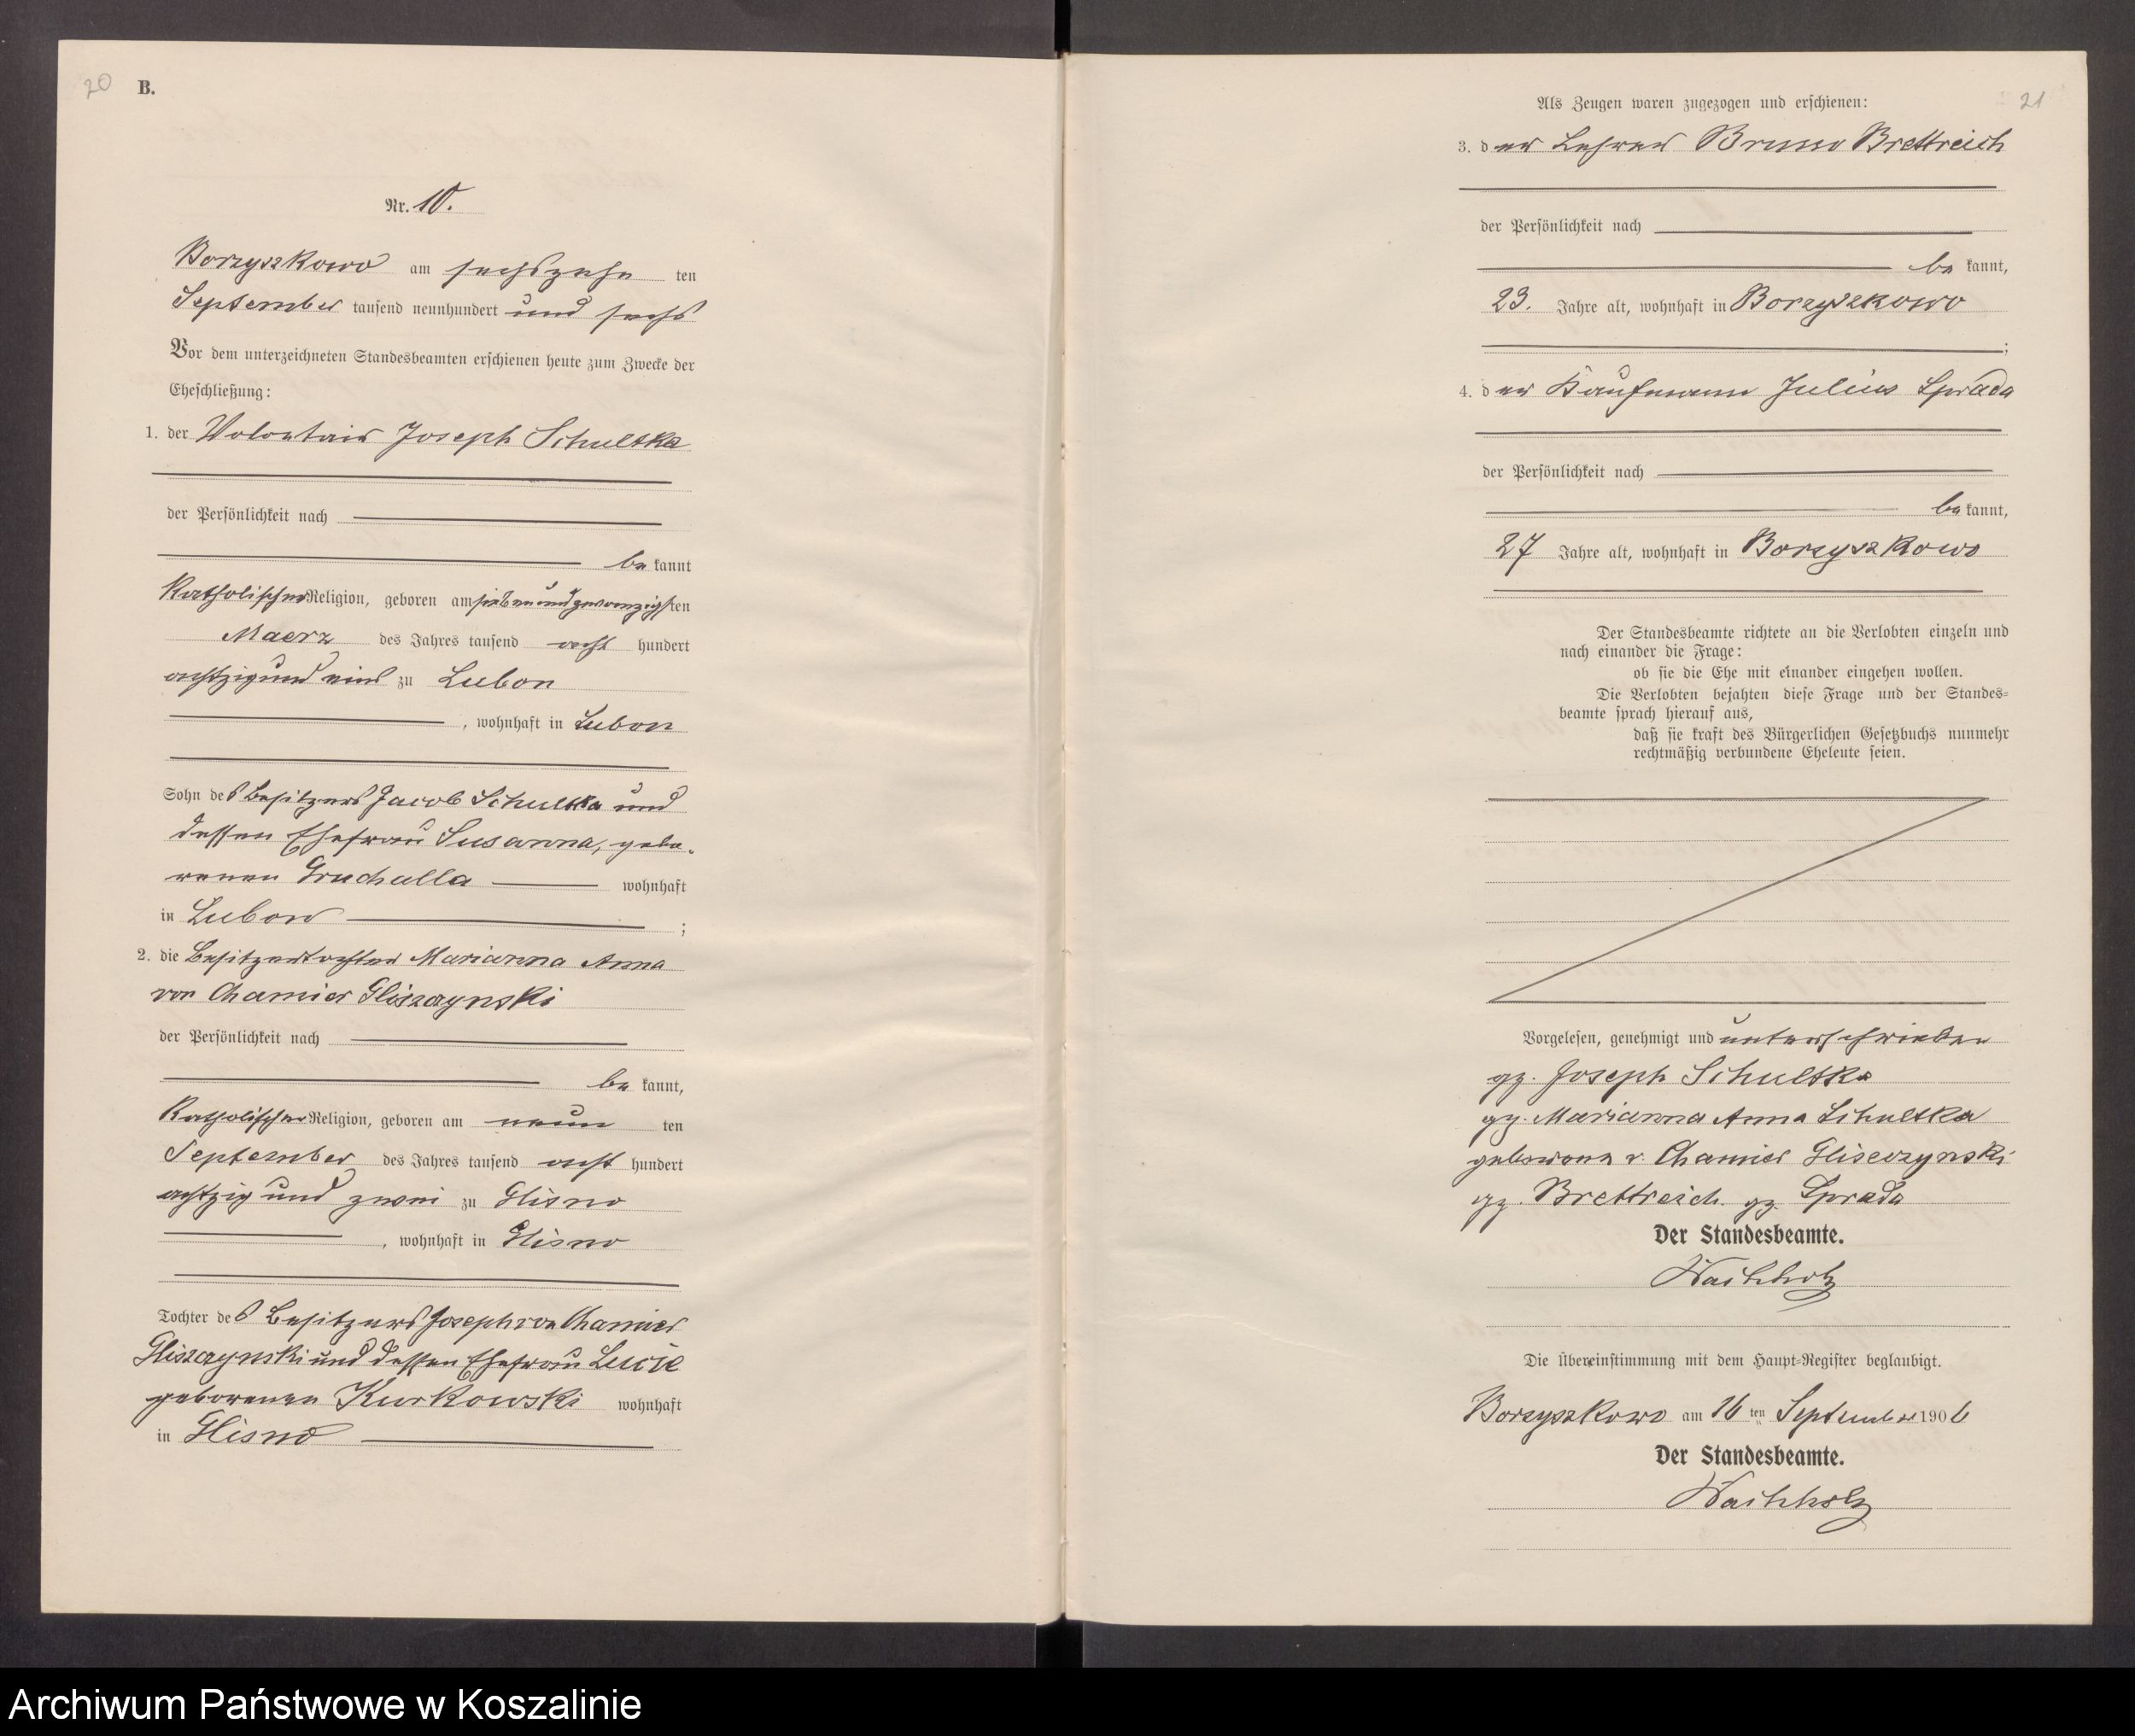 20
B.
Nr. 10.
Borzyszkowo am sechszehn ten
September tausend neunhundert und sechs
Vor dem unterzeichneten Standesbeamten erschienen heute zum Zwecke der
Eheschließung:
1. der Volontair Joseph Schultka
der Persönlichkeit nach
be kannt
Katholischer Religion, geboren am siebenundzwanzigsten
Maerz des Jahres tausend acht hundert
achtzig und eins zu Lubon
, wohnhaft in Lubon
Sohn des Besitzers Jacob Schultka und
dessen Ehefrau Susanna, gebo-
renen Gruchalla wohnhaft
in Lubon ;
2. die Besitzertochter Marianna Anna
von Chamier Gliszczynski
der Persönlichkeit nach
be kannt,
Katholischer Religion, geboren am neun ten
September des Jahres tausend acht hundert
achtzig und zwei zu Glisno
, wohnhaft in Glisno
Tochter des Besitzers Joseph von Chamier
Gliszczynski und dessen Ehefrau Lucie
geborenen Kurkowski wohnhaft
in Glisno
Als Zeugen waren zugezogen und erschienen:
21
3. der Lehrer Bruno Brettreich
der Persönlichkeit nach
be kannt,
23. Jahre alt, wohnhaft in Borzyszkowo
;
4. der Kaufmann Julius Sprada
der Persönlichkeit nach
be kannt,
27 Jahre alt, wohnhaft in Borzyszkowo
Der Standesbeamte richtete an die Verlobten einzeln und
nach einander die Frage:
ob sie die Ehe mit einander eingehen wollen.
Die Verlobten bejahten diese Frage und der Standes-
beamte sprach hierauf aus,
daß sie kraft des Bürgerlichen Gesetzbuchs nunmehr
rechtmäßig verbundene Eheleute seien.
Vorgelesen, genehmigt und unterschrieben
gz. Joseph Schultka
gz. Marianna Anna Schultka
geborene v. Chamier Gliszczynski
gz. Brettreich. gz. Sprada
Der Standesbeamte.
Die Übereinstimmung mit dem Haupt-Register beglaubigt.
Borzyszkowo am 16 ten September 1906
Der Standesbeamte.
Archiwum Państwowe w Koszalinie